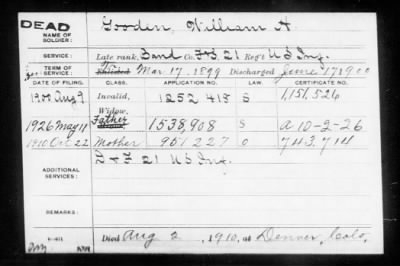 DEAD
Gooden, William H
NAME OF SOLDIER:
SERVICE: Late rank, Band Co. F&S, 21 Reg't U S Inf.
TERM OF SERVICE: Enlisted Mar. 17, 1899 Discharged June 17 1900
DATE OF FILING. CLASS. APPLICATION NO. LAW. CERTIFICATE NO.
1900 Aug 9 Invalid, 1252 415 S 1,151,526
Widow,
1926 May 11 Father 1,538,908 S a 10-2-26
1910 Oct 22 Mother 951 227 O 743,714
F & F 21 U S Inf.
ADDITIONAL SERVICES:
REMARKS:
Died Aug 2, 1910, at Denver, Colo,